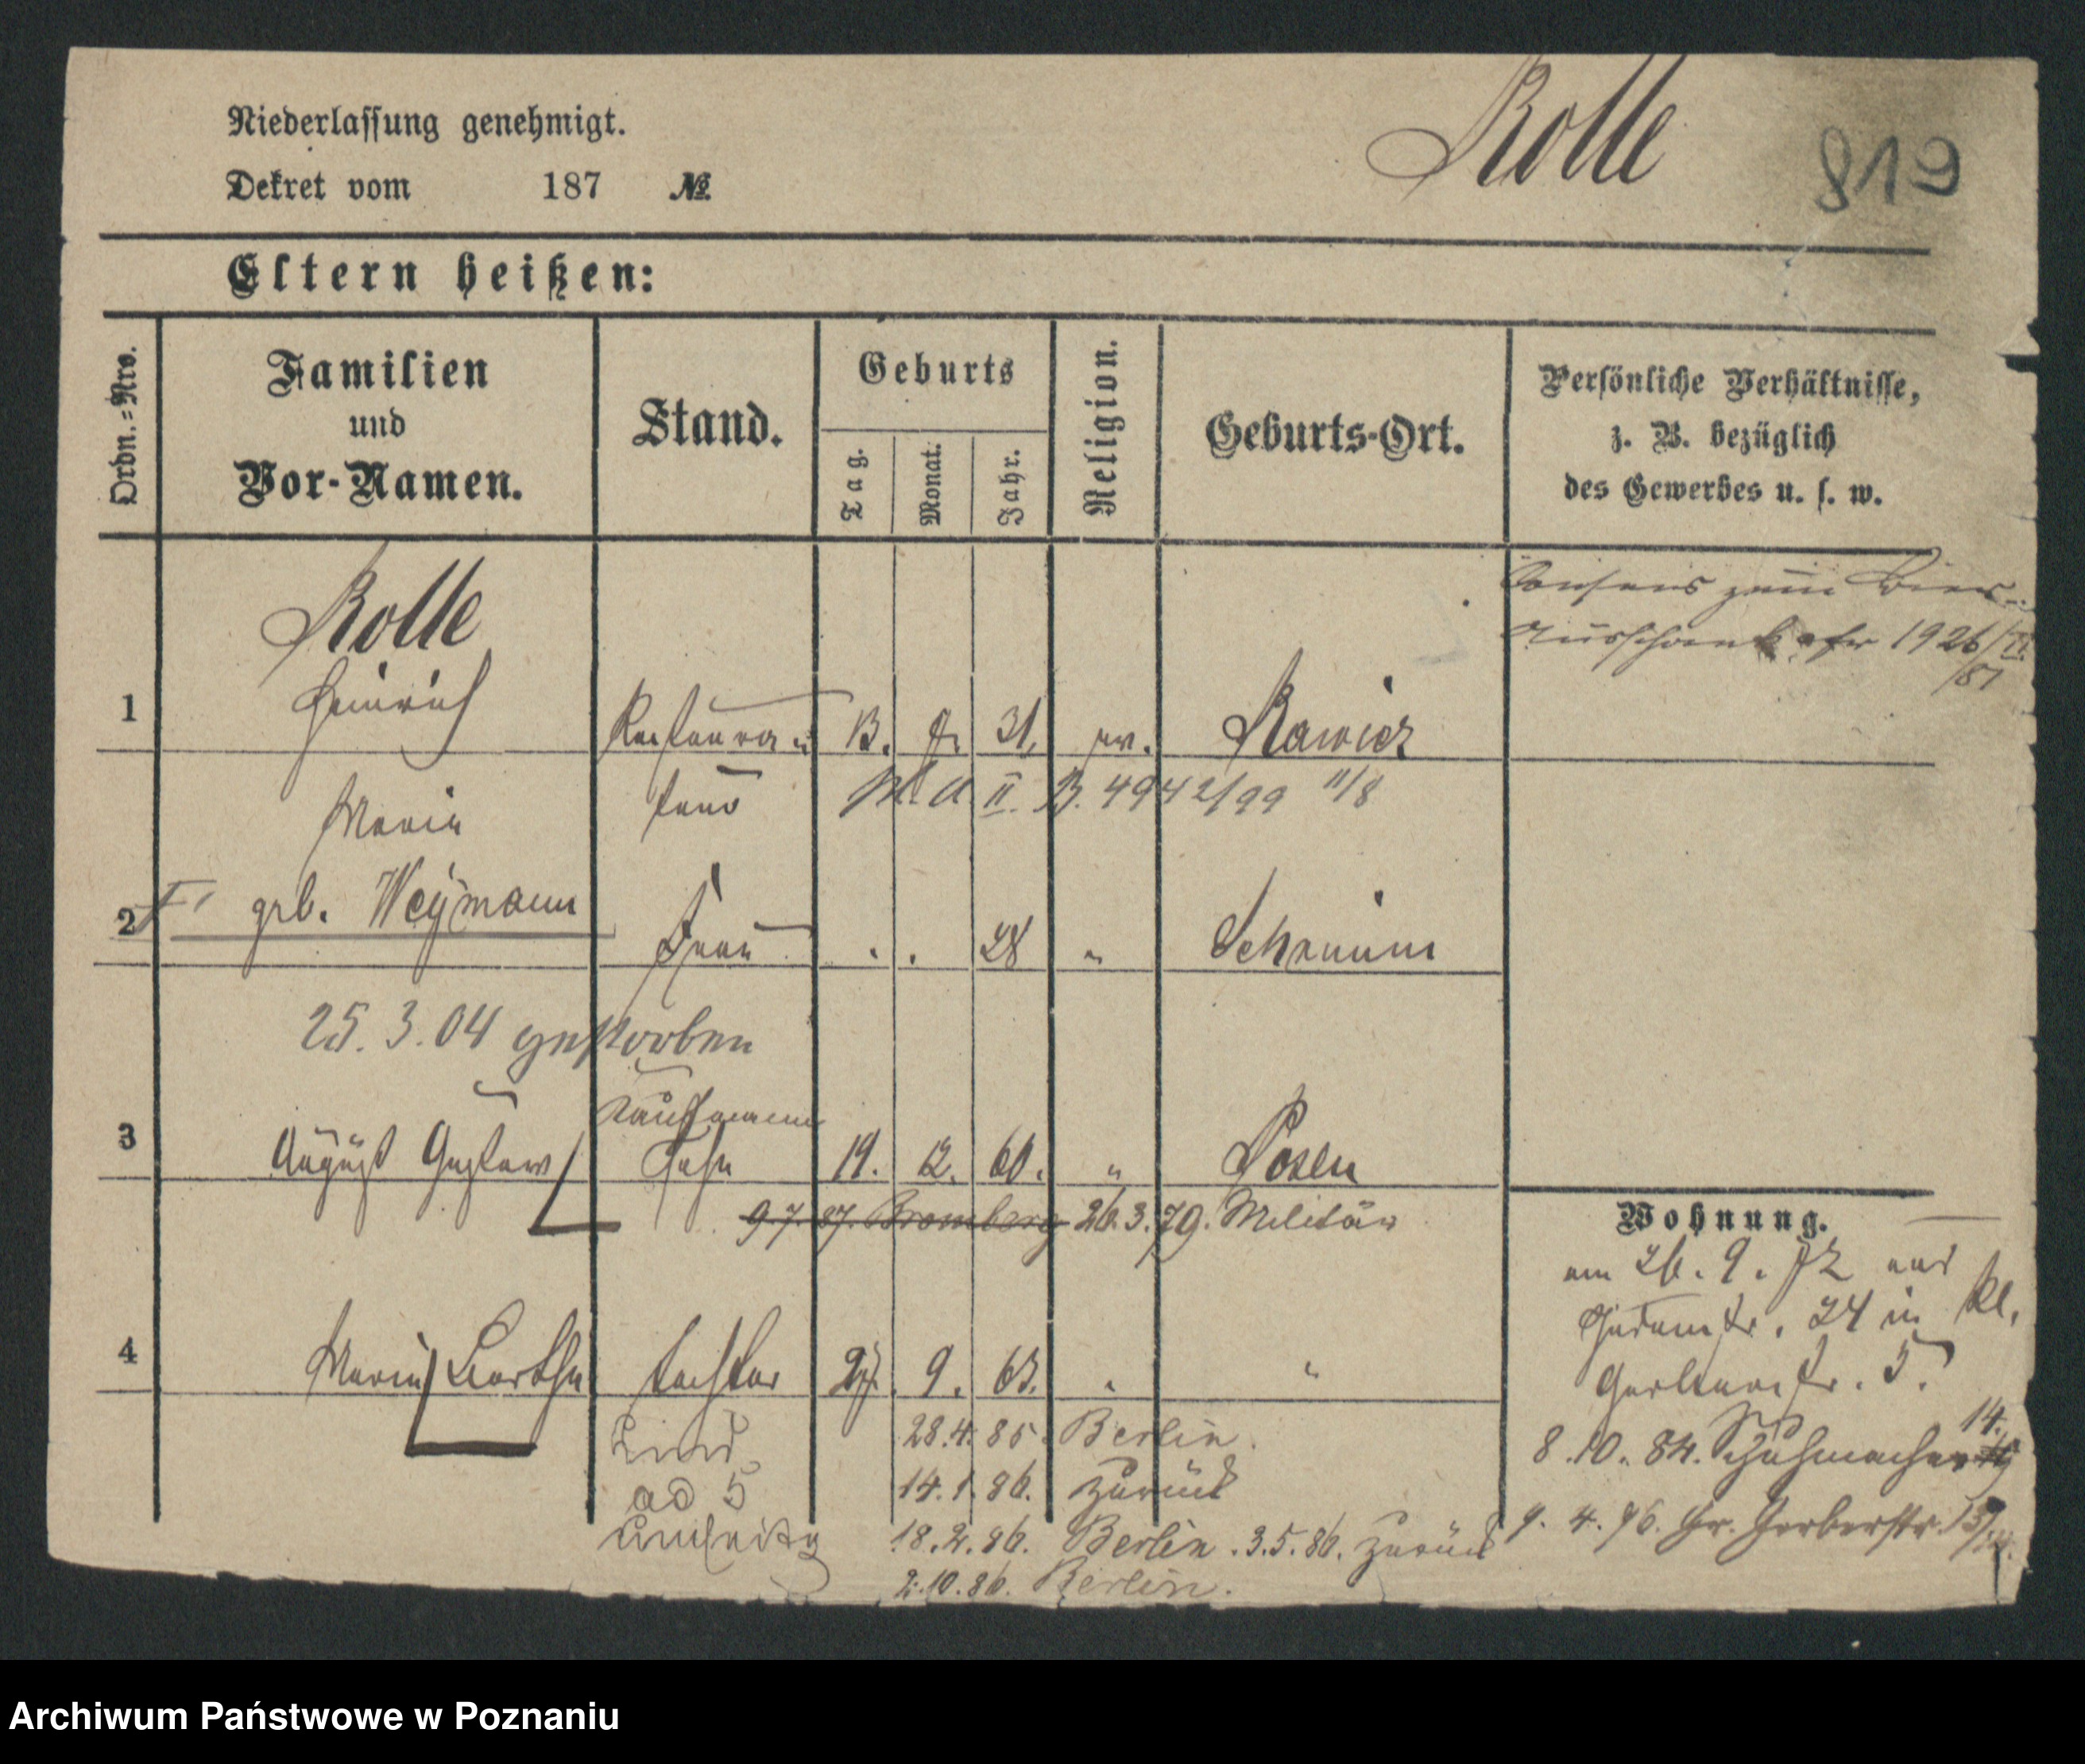 Rolle
819
Niederlassung genehmigt.
Dekret vom 187 №
Eltern heißen:
Ordn.=Nro.
Familien
und
Vor-Namen.
Stand.
Geburts
Tag.
Monat.
Jahr.
Religion.
Geburts-Ort.
Persönliche Verhältnisse,
z. B. bezüglich
des Gewerbes u. s. w.
Consens zum Bier-
Ausschank 1926/II
/81
Rolle
1 Heinrich Restaura 13. 31. Rawicz
teur II. B. 4942/99 11/8
Maria
2 geb. Weymann Frau . . 28 " Schrimm
25. 3. 04 gestorben
Kaufmann
3 August Gustaw Sohn 19. 12. 60. " Posen
9.7.87. Bromberg 26.3.79. Militär
4 Maria Bertha Tochter 27. 9. 63. " "
Kind 28.4.85. Berlin.
ad 5 14.1.86. zurück
umseitig 18.2.86. Berlin. 3.5.86. zurück
2.10.86. Berlin.
Wohnung.
am 26. 9. 72 aus
Judenstr. 24 in kl.
Gerberstr. 5.
8.10.84. Schuhmacher 14.
9. 4. 96. Gr. Gerberstr.
Archiwum Państwowe w Poznaniu